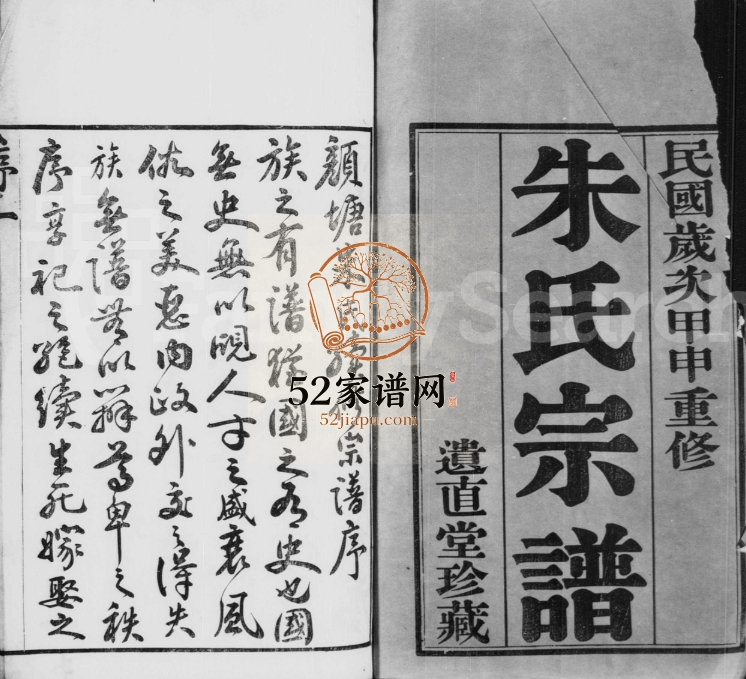 民國歲次甲申重修
朱氏宗譜
遺直堂珍藏
顏塘朱氏 宗譜序
族之有譜猶國之有史也國
無史無以覘人才之盛衰風
俗之美惡內政外交之得失
族無譜無以辨尊卑之秩
序享祀之絕續生死嫁娶之
序一
52家谱网
52jiapu.com
FamilySearch